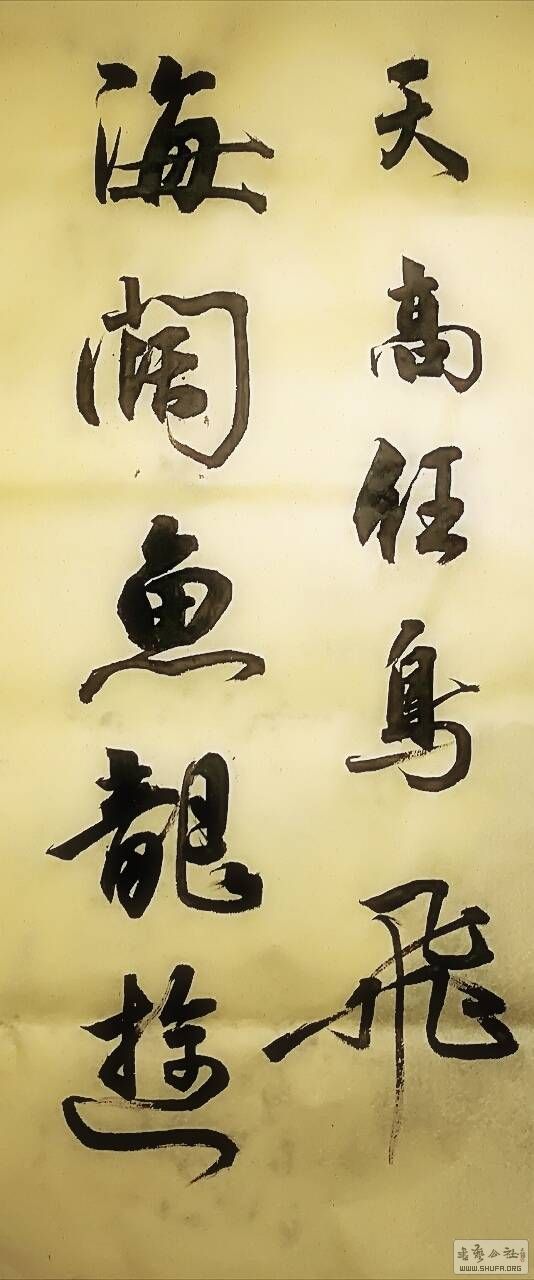 天高任鳥飛
海闊魚龍遊
書藝公社
WWW.SHUFA.ORG